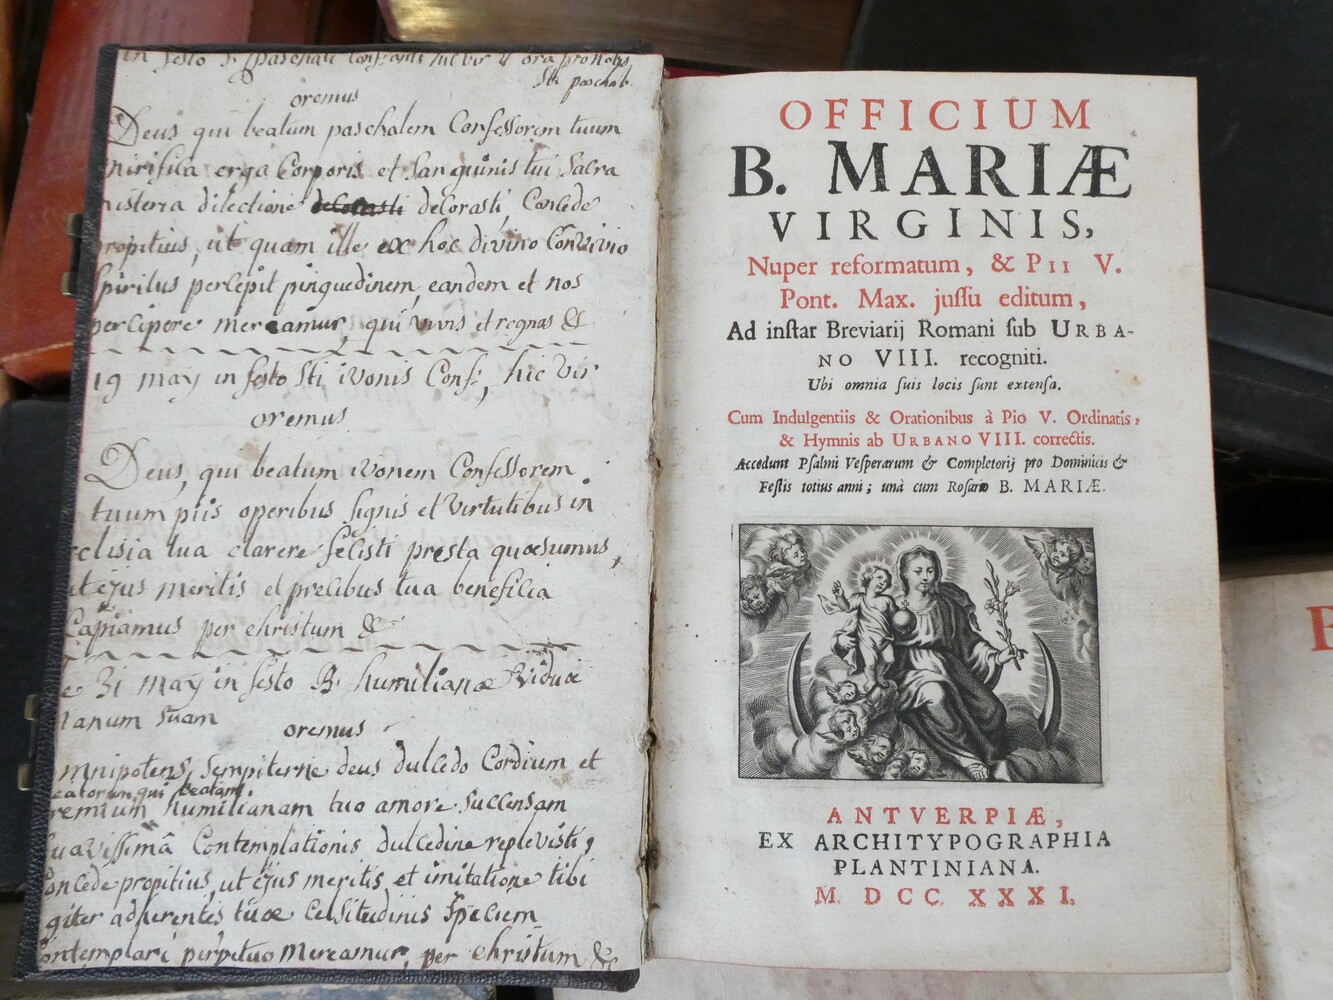 in festo S. paschali Conf: hic vir ora pro nobis
Ste paschal.
oremus
Deus qui beatum paschalem Confessorem tuum
mirifica erga Corporis et sanguinis tui sacra
misteria dilectione decorasti decorasti, Concede
propitius, ut quam ille ex hoc divino Convivio
spiritus percepit pinguedinem, eandem et nos
percipere mereamur, qui vivis et regnas &
19 maÿ in festo Sti ivonis Conf:, hic vir
oremus
Deus, qui beatum ivonem Confessorem
tuum piis operibus signis et virtutibus in
eclisia tua clarere fecisti presta quæsumus,
ut ejus meritis et precibus tua beneficia
Capiamus per christum &
31 maÿ in festo B. humilianæ viduæ
manum suam
oremus
omnipotens, sempiterne deus dulcedo Cordium et
qui beatam
premium humilianam tuo amore succensam
suavissimâ Contemplationis dulcedine replevisti,
concede propitius, ut ejus meritis et imitatione tibi
giter adherentes tuæ Celsitudinis speciem
contemplari perpetuo mereamur, per christum &
OFFICIUM
B. MARIÆ
VIRGINIS,
Nuper reformatum, & PII V.
Pont. Max. juſſu editum,
Ad inſtar Breviarij Romani ſub URBA-
NO VIII. recogniti.
Ubi omnia ſuis locis ſunt extenſa.
Cum Indulgentiis & Orationibus à Pio V. Ordinatis,
& Hymnis ab URBANO VIII. correctis.
Accedunt Pſalmi Veſperarum & Completorij pro Dominicis &
Feſtis totius anni; unà cum Roſario B. MARIÆ.
ANTVERPIÆ,
EX ARCHITYPOGRAPHIA
PLANTINIANA.
M. D CC. XXXI.